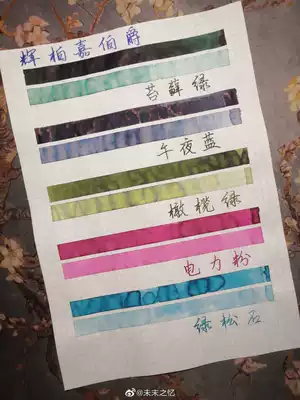 辉柏嘉伯爵
苔藓绿
午夜蓝
橄榄绿
电力粉
绿松石
@未未之忆